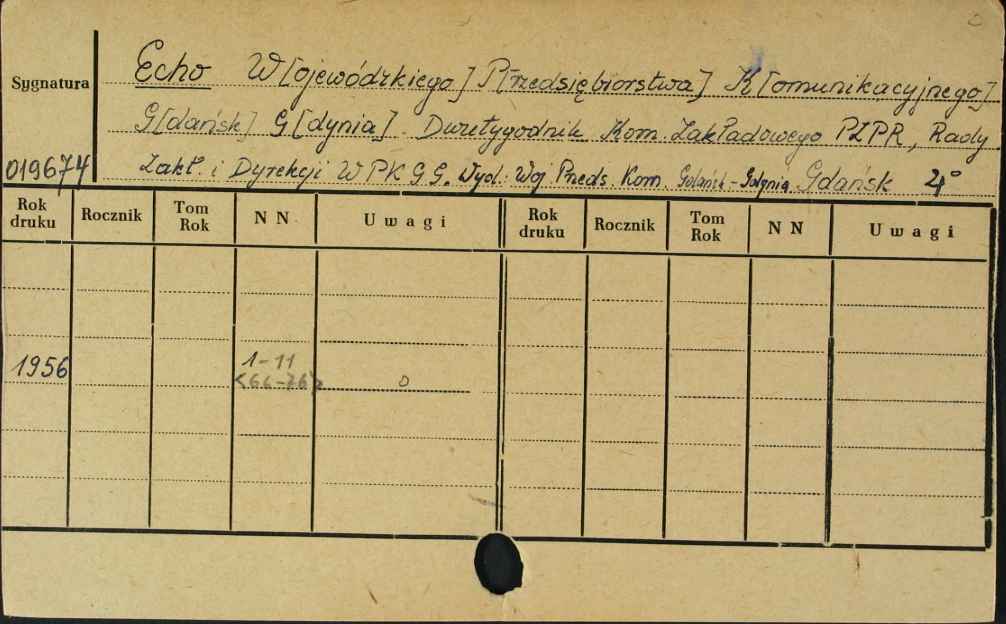 Sygnatura
019674
Echo W[ojewódzkiego] P[rzedsiębiorstwa] K[omunikacyjnego]
G[dańsk] G[dynia]. Dwutygodnik Kom. Zakładowego PZPR, Rady
Zakł. i Dyrekcji WPKGG. Wyd: Woj. Przeds. Kom. Gdańsk-Gdynia. Gdańsk 4°
Rok druku Rocznik Tom Rok NN Uwagi Rok druku Rocznik Tom Rok NN Uwagi
1956 1-11
<66-76> 0